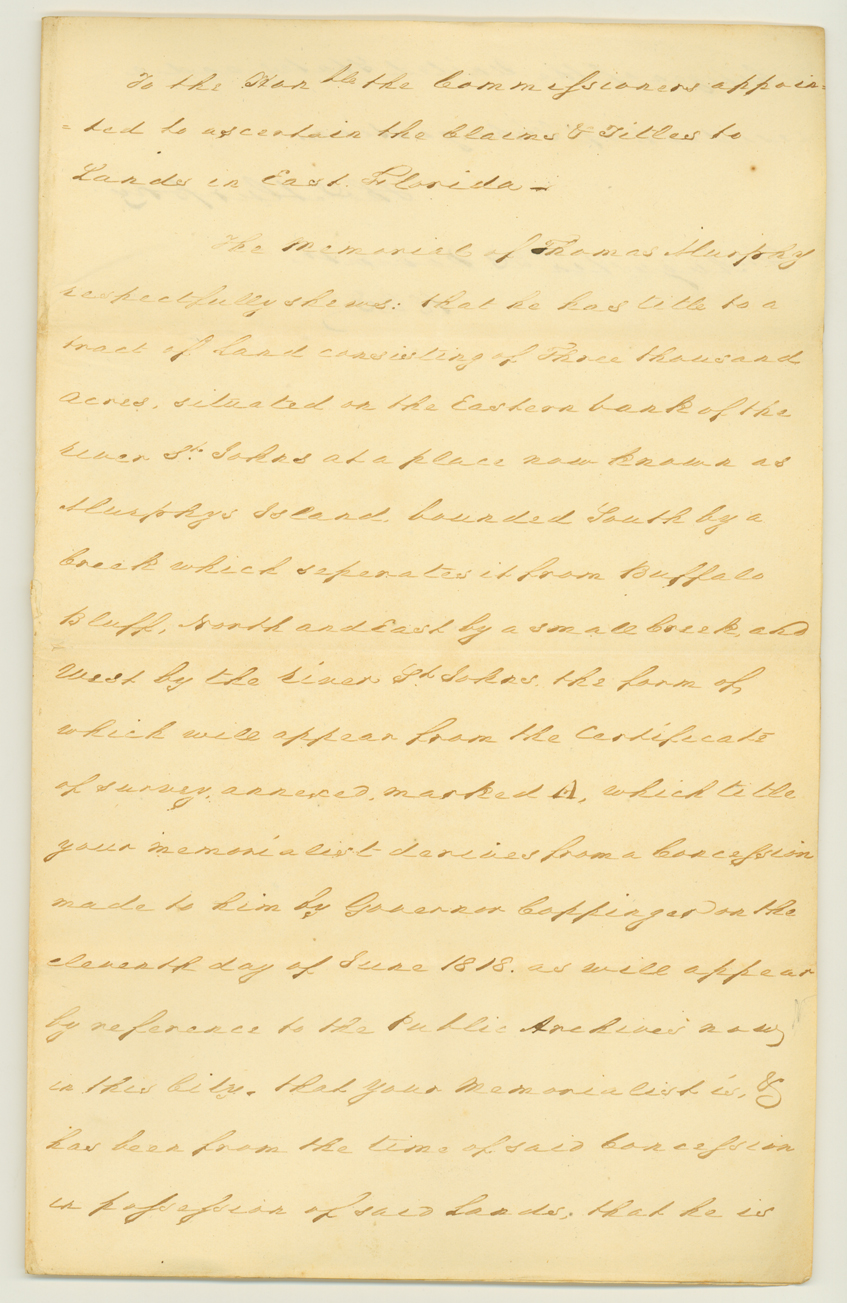 To the Honble the Commissioners appoin=
=ted to ascertain the Claims & Titles to
Lands in East Florida —
The Memorial of Thomas Murphy
respectfully shews: that he has title to a
tract of Land consisting of Three thousand
acres, situated on the Eastern bank of the
river St. Johns at a place now known as
Murphys Island, bounded South by a
Creek which seperates it from Buffalo
Bluff, North and East by a small Creek, and
West by the River St. Johns. the form of
which will appear from the Certificate
of survey, annexed, marked A, which title
your memorialist derives from a Concession
made to him by Governor Coppinger on the
eleventh day of June 1818. as will appear
by reference to the Public Archives now
in this City. that your Memorialist is, &
has been from the time of said Concession
in possession of said Lands; that he is